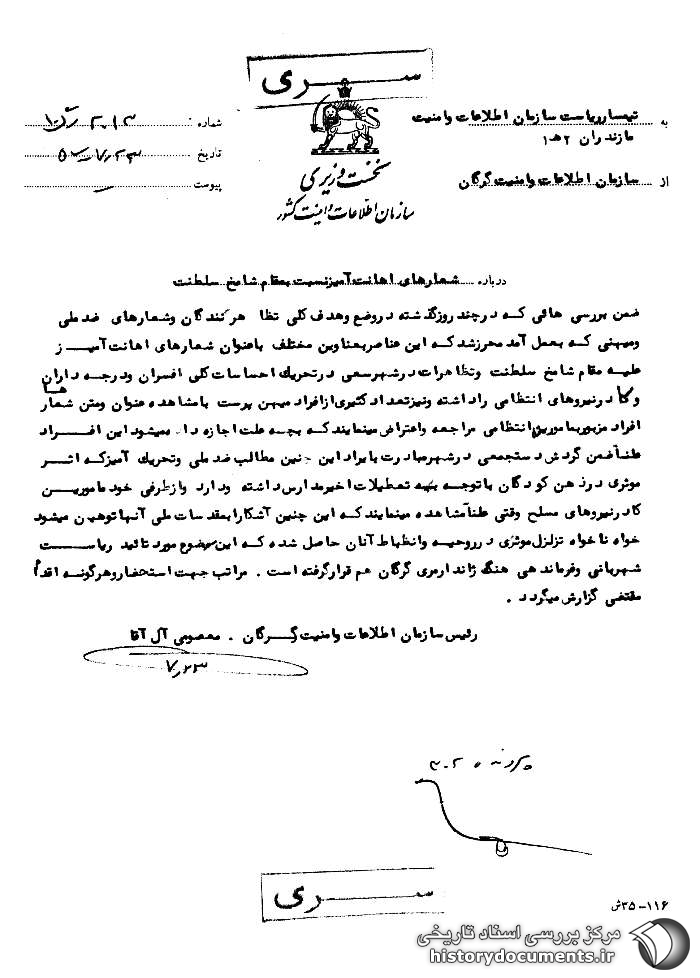 ســـری
به تیمسار ریاست سازمان اطلاعات وامنیت
مازندران ۲هـ۱
از سازمان اطلاعات وامنیت گرگان
شماره:
تاریخ
پیوست
نخست وزیری
سازمان اطلاعات و امنیت کشور
درباره شعارهای اهانت آمیز نسبت بمقام شامخ سلطنت
ضمن بررسی هائی که درچند روزگذشته دروضع وهدف کلی تظا هرکنندگان وشعارهای ضد ملی
ومیهنی که بعمل آمد محرزشد که این عناصر بعناوین مختلف باعنوان شعارهای اهانت آمیـــز
علیه مقام شامخ سلطنت وتظاهرات درشهرسعی درتحریك احساسات کلی افسران ودرجه داران
وکادرنیروهای انتظامی راداشته ونیزتعداد کثیری ازافراد میهن پرست بامشاهده عنوان ومتن شعارها
افراد مزبوربمامورین انتظامی مراجعه واعتراض مینمایند که بچه علت اجازه داده میشود این افـــراد
علناً ضمن گردش دستجمعی درشهرمبادرت بایراد این چنین مطالب ضد ملی وتحریك آمیزکه اثــر
موثری درذهن کودکان باتوجه به تعطیلات اخیرمدارس داشته ودارد وازطرفی خود مامورین
کادرنیروهای مسلح وقتی علناً مشاهده مینمایند که این چنین آشکارا بمقدسات ملی آنها توهین میشود
خواه ناخواه تزلزل موثری درروحیه وانظباط آنان حاصل شده که این موضوع مورد تائید ریاست
شهربانی وفرماندهی هنگ ژاندارمری گرگان هم قرارگرفته است . مراتب جهت استحضار وهرگونه اقدام
مقتضی گزارش میگردد .
رئیس سازمان اطلاعات وامنیت گـــرگان . معصومی آل آقا
۷/۲۳
ســـری
۱۱۶-۳۵ش
مرکز بررسی اسناد تاریخی
historydocuments.ir